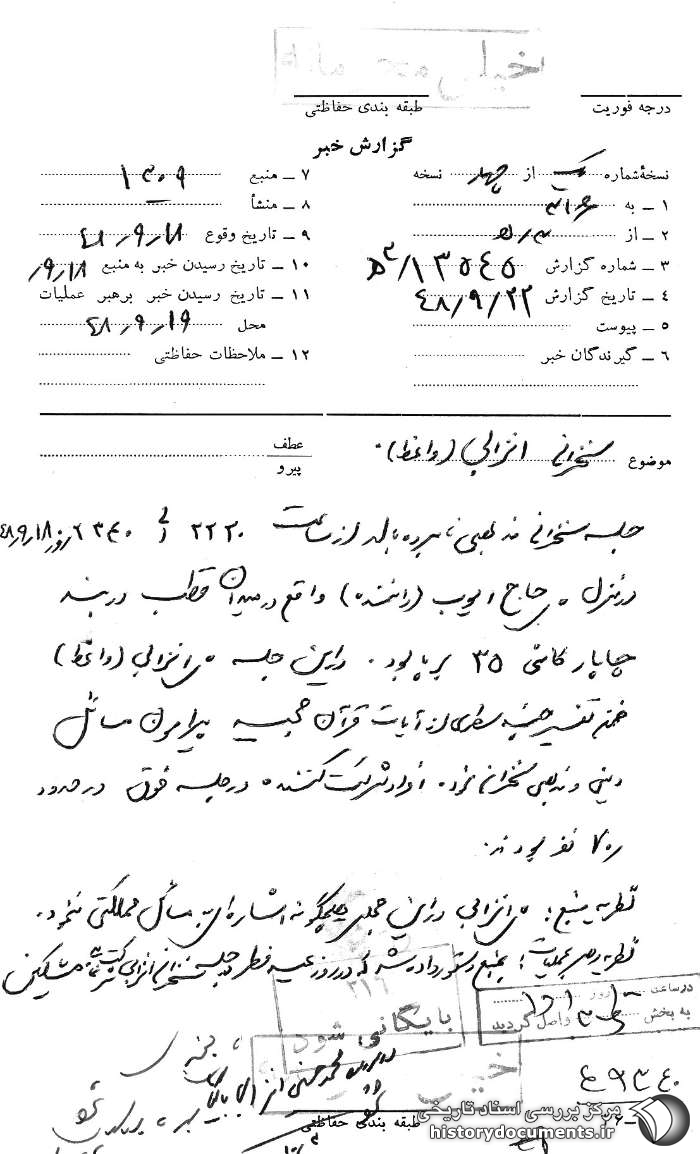 خیلی محرمانه
درجه فوریت
طبقه بندی حفاظتی
گزارش خبر
نسخهٔ شماره یک از چهار نسخه
۱ ــ به ۳۱۶
۲ ــ از ۵۳
۳ ــ شماره گزارش ۱۳۵۴۵/ﻫ۳
۴ ــ تاریخ گزارش ۴۸/۹/۲۲
۵ ــ پیوست
۶ ــ گیرندگان خبر
۷ ــ منبع ۱۳۰۹
۸ ــ منشأ
۹ ــ تاریخ وقوع ۴۸٫۹٫۱۸
۱۰ ــ تاریخ رسیدن خبر به منبع ۹٫۱۸
۱۱ ــ تاریخ رسیدن خبر برهبر عملیات
محل ۴۸٫۹٫۱۹
۱۲ ــ ملاحظات حفاظتی
موضوع سخنرانی انزابی (واعظ).
عطف
پیرو
جلسه سخنرانی مذهبی نامبرده بالا از ساعت ۲۲۳۰ الی ۲۳۴۰ روز ۴۸٫۹٫۱۸
در منزل حاج ایوب (راننده) واقع در میدان قطب دربند
چاپار کاشی ۳۵ برپا بود. در این جلسه انزابی (واعظ)
ضمن تفسیر چند سطری از آیات قرآن مجید پیرامون مسائل
دینی و مذهبی سخنرانی نمود. افراد شرکت کننده در جلسه فوق در حدود
۷۰ نفر بودند.
نظریه منبع: انزابی در این مجلس هیچگونه اشاره‌ای به مسائل مملکتی ننمود.
نظریه رهبر عملیات: به منبع دستور داده شد که در روز عید فطر در جلسه سخنرانی انزابی شرکت نماید مشکین
۳۱۶
بایگانی شود
در ساعت روز
به بخش ۳۱۶ واصل گردید
محمد حسین انزابی
۴۹۳۴۰
طبقه بندی حفاظتی
مرکز بررسی اسناد تاریخی
historydocuments.ir